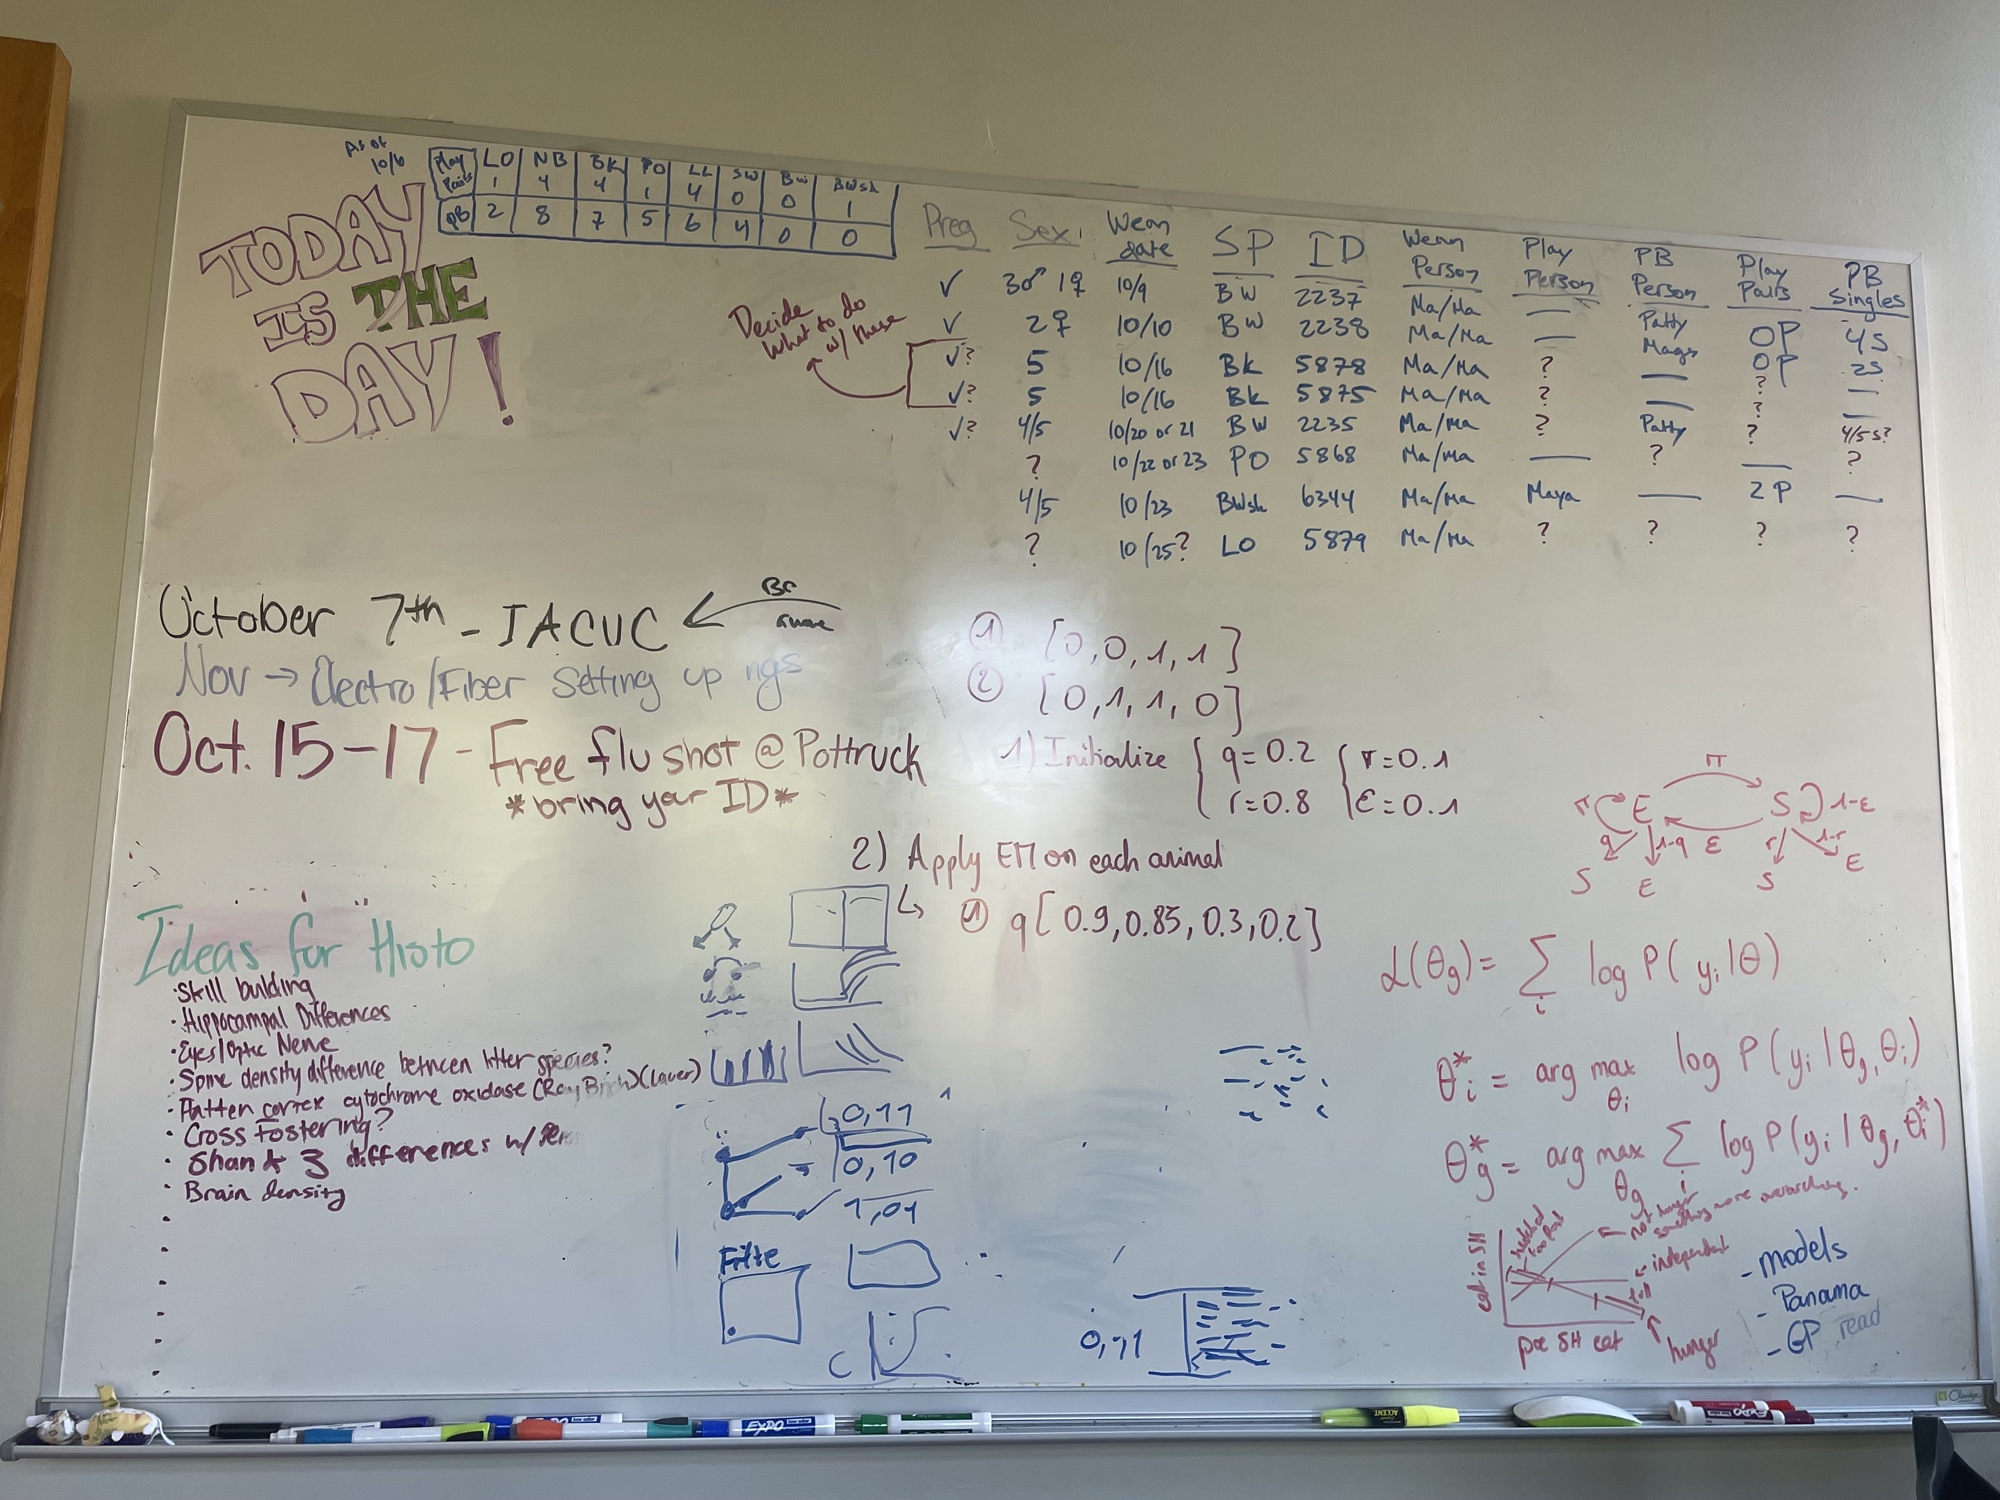 As of
10/6
Play Pairs | LO 1 | NB 4 | BK 4 | PO 1 | LL 4 | SW 0 | BW 0 | BWsh 1
PB | 2 | 8 | 7 | 5 | 6 | 4 | 0 | 0
TODAY
IS THE
DAY!
Decide
what to do
w/ these
Preg Sex Wean date SP ID Wean Person Play Person PB Person Play Pairs PB Singles
✓ 3♂ 1♀ 10/9 BW 2237 Ma/Ma — Patty 0P 4S
✓ 2♀ 10/10 BW 2238 Ma/Ma — Mags 0P 2S
✓? 5 10/16 BK 5878 Ma/Ma ? — ? —
✓? 5 10/16 BK 5875 Ma/Ma ? — ? —
✓? 4/5 10/20 or 21 BW 2235 Ma/Ma ? Patty ? 4/5 S?
? 10/22 or 23 PO 5868 Ma/Ma — ? — ?
4/5 10/23 BWsh 6344 Ma/Ma Maya — 2P —
? 10/25? LO 5879 Ma/Ma ? ? ? ?
October 7th - IACUC ←
Nov → Electro/Fiber setting up rigs
Oct. 15-17 - Free flu shot @ Pottruck
*bring your ID*
① [0,0,1,1]
② [0,1,1,0]
1) Initialize { q=0.2 { π=0.1
r=0.8 ε=0.1
2) Apply EM on each animal
↳ ① q [0.9, 0.85, 0.3, 0.2]
π
π E S 1-ε
q 1-q ε r 1-r
S E S E
L(θg) = Σi log P(yi|θ)
θi* = arg max θi log P(yi|θg,θi)
θg* = arg max θg Σi log P(yi|θg,θi*)
Ideas for Histo
·Skill building
·Hippocampal Differences
·Eyes/Optic Nerve
·Spine density difference between litter species?
·Flatten cortex cytochrome oxidase (Ray Birch) (Lauer)
·Cross fostering?
·Shank 3 differences w/
·Brain density
0,11
0,10
1,01
Filte
C
0,11
← not hunger
something more overarching.
← independent
eat in SH
pre SH eat
hunger
- models
- Panama
- GP read
EXPO
EXPO
ACCENT
EXPO